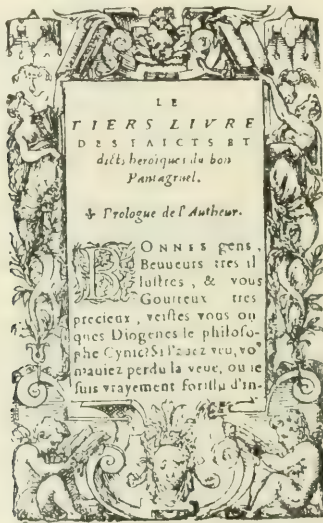 LE
TIERS LIVRE
DES FAICTS ET
dicts heroiques du bon
Pantagruel.
✤ Prologue de l'Autheur.
BONNES gens,
Beuueurs tres il
lustres, & vous
Goutteux tres
precieux, veistes vous on
ques Diogenes le philoso-
phe Cynic? Si l'auez veu, vo9
n'auiez perdu la veue, ou ie
suis vrayement forissu d'in-